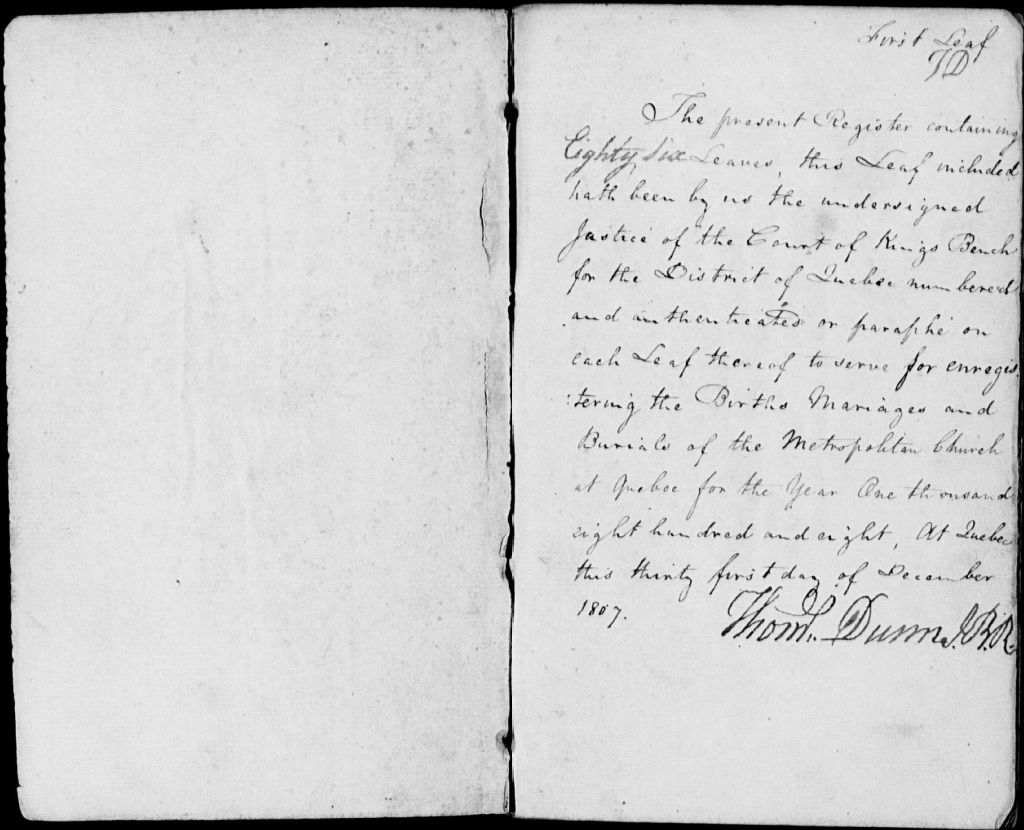 First Leaf
TD
The present Register containing
Eighty six Leaves, this Leaf included
hath been by us the undersigned
Justice of the Court of Kings Bench
for the District of Quebec numbered
and authenticated or paraphé on
each Leaf thereof to serve for enregis
:tering the Births Mariages and
Burials of the Metropolitan Church
at Quebec for the Year One thousand
eight hundred and eight, At Quebec
this thirty first day of December
1807.
Thoms. Dunn J.B.R.